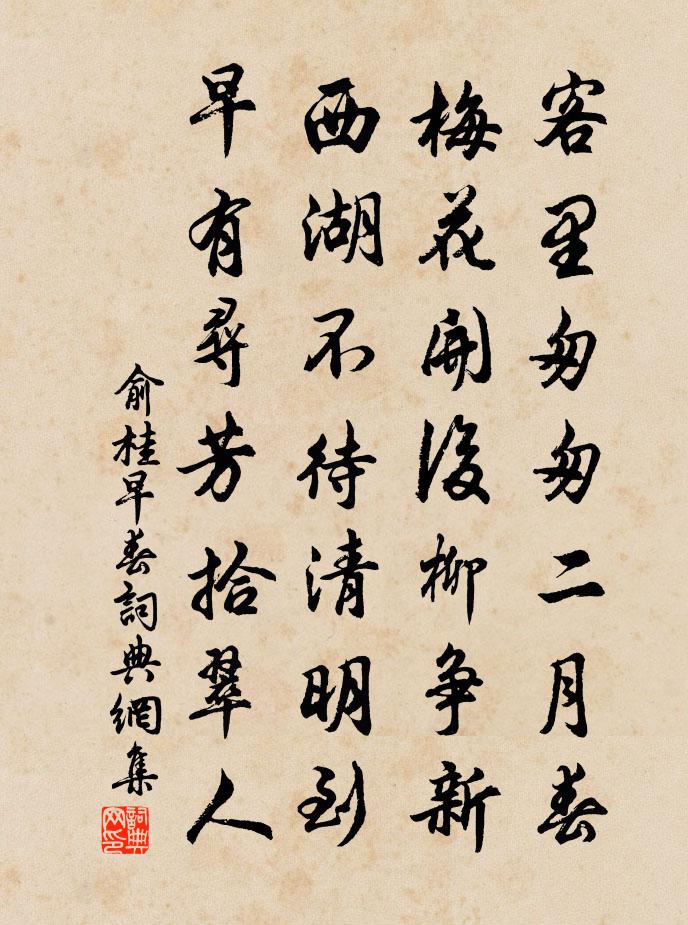 客里匆匆二月春
梅花開後柳爭新
西湖不待清明到
早有尋芳拾翠人
俞桂早春詞典網集
詞典网印